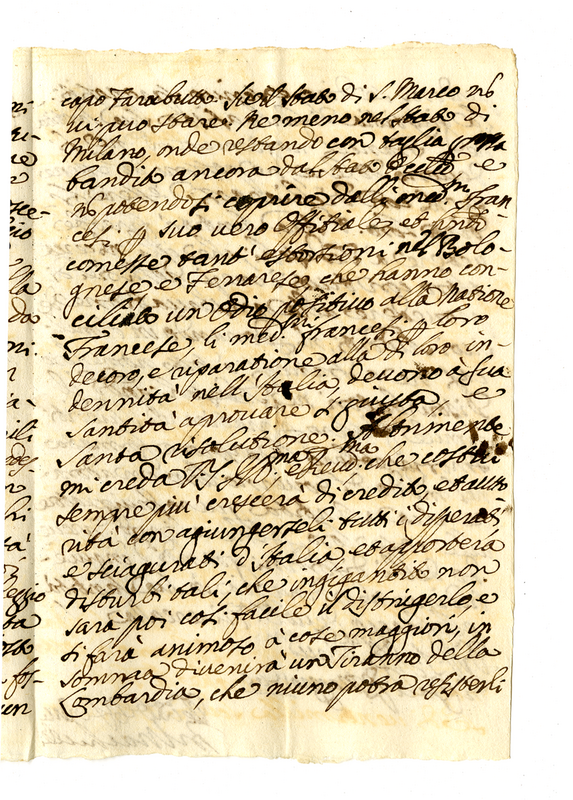 capo Farabutto. Nello stato di S. Marco nõ
vi puo stare. Ne meno nel stato di
Milano, onde restando con taglia
bandito ancora dal stato Eccl.co e
nõ potendosi coprire dalli med.mi Fran
cesi p suo vero Offitiale, et
comesse tant' estortioni nel Bolo-
gnese e Ferrarese, che hanno con-
ciliato un odio positivo alla Natione
Francese, li med.mi francesi p loro
decoro, e riparatione alla di loro in-
dennità nell'Italia, devono à sua
Santità aprovare di giusta, e
santa risolutione. Altrimente
mi creda V.S. Ill.ma, e Rev.ma che costui
sempre più crescerà di credito, et auto
rità con agiungerseli tutti i disperati
e sciagurati d'Italia et apporterà
disturbi tali, che ingigantito non
sarà poi così facile il distrigerlo, e
si farà animoso à cose maggiori, in
somma divenirà un Tiranno della
Lombardia, che niuno potrà resisterli